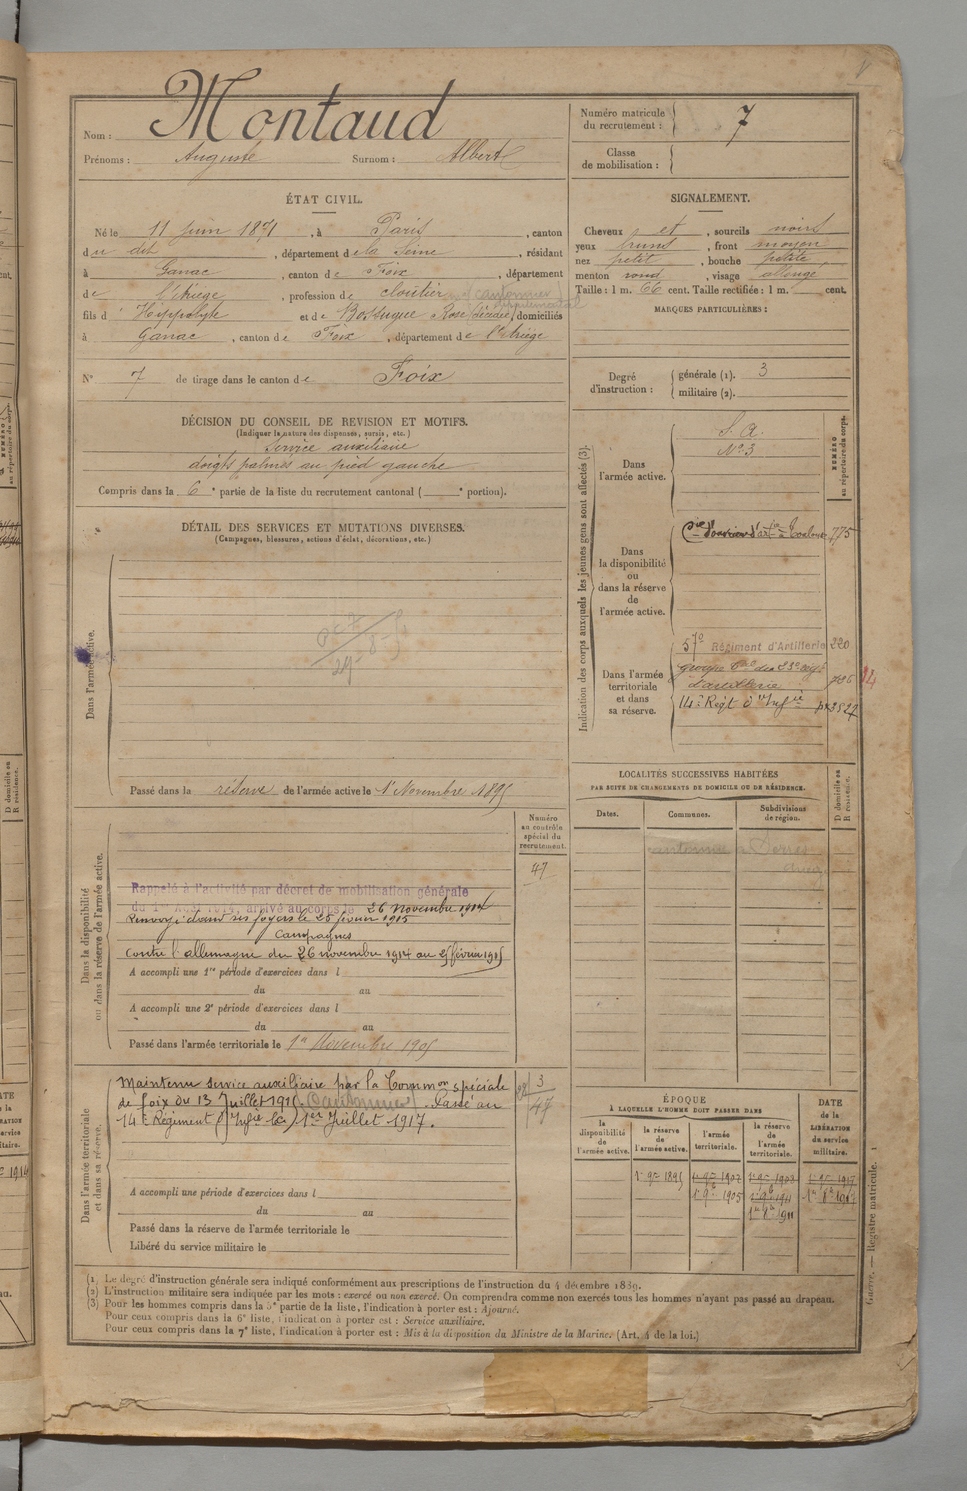 Nom : Montaud
Prénoms : Auguste Surnom : Albert
Numéro matricule du recrutement : 7
Classe de mobilisation :
ÉTAT CIVIL.
Né le 11 juin 1871, à Paris, canton
du dit, département de la Seine, résidant
à Ganac, canton de Foix, département
de l'Ariège, profession de cloutier cantonnier
départemental
fils d' Hippolyte et de Rose (décédée) domiciliés
à Ganac, canton de Foix, département de l'Ariège
N° 7 de tirage dans le canton de Foix
SIGNALEMENT.
Cheveux et, sourcils noirs
yeux bruns, front moyen
nez petit, bouche petite,
menton rond, visage allongé
Taille : 1 m. 66 cent. Taille rectifiée : 1 m. cent.
MARQUES PARTICULIÈRES :
Degré d'instruction : générale (1). 3
militaire (2).
DÉCISION DU CONSEIL DE REVISION ET MOTIFS.
(Indiquer la nature des dispenses, sursis, etc.)
Service auxiliaire
doigts palmés au pied gauche
Compris dans la 6e partie de la liste du recrutement cantonal ( e portion).
DÉTAIL DES SERVICES ET MUTATIONS DIVERSES.
(Campagnes, blessures, actions d'éclat, décorations, etc.)
Dans l'armée active.
Passé dans la réserve de l'armée active le 1er Novembre 1895
Indication des corps auxquels les jeunes gens sont affectés (3).
NUMÉRO au répertoire du corps.
Dans l'armée active.
S. A.
N° 3
Dans la disponibilité ou dans la réserve de l'armée active.
Cie d'ouvriers d'artie à Toulouse 775
Dans l'armée territoriale et dans sa réserve.
57e Régiment d'Artillerie 220
groupe du 23e régt
d'artillerie 14
14e Régt d'Infie
LOCALITÉS SUCCESSIVES HABITÉES
PAR SUITE DE CHANGEMENTS DE DOMICILE OU DE RÉSIDENCE.
Dates. Communes. Subdivisions de région. D domicile ou R résidence.
Dans la disponibilité ou dans la réserve de l'armée active.
Numéro au contrôle spécial du recrutement.
47
Rappelé à l'activité par décret de mobilisation générale
du 1er Août 1914, arrivé au corps le 26 novembre 1914
Renvoyé dans ses foyers le 25 février 1915
Campagnes
Contre l'allemagne du 26 novembre 1914 au 25 février 1915
A accompli une 1re période d'exercices dans l
du au
A accompli une 2e période d'exercices dans l
du au
Passé dans l'armée territoriale le 1er Novembre 1905
Dans l'armée territoriale et dans sa réserve.
Maintenu service auxiliaire par la Common spéciale
de foix du 13 Juillet 1915. (Cantonnier) Passé au
14e Régiment d'Infie le 1er Juillet 1917.
3
47
A accompli une période d'exercices dans l
du au
Passé dans la réserve de l'armée territoriale le
Libéré du service militaire le
ÉPOQUE
À LAQUELLE L'HOMME DOIT PASSER DANS
la disponibilité de l'armée active. la réserve de l'armée active. l'armée territoriale. la réserve de l'armée territoriale.
DATE de la LIBÉRATION du service militaire.
1er 9bre 1895 1er 9bre 1902 1er 9bre 1908 1er 9bre 1917
1er 9bre 1905 1er 9bre 1911
1er 8bre 1911
(1) Le degré d'instruction générale sera indiqué conformément aux prescriptions de l'instruction du 4 décembre 1889.
(2) L'instruction militaire sera indiquée par les mots : exercé ou non exercé. On comprendra comme non exercés tous les hommes n'ayant pas passé au drapeau.
(3) Pour les hommes compris dans la 5e partie de la liste, l'indication à porter est : Ajourné.
Pour ceux compris dans la 6e liste, l'indication à porter est : Service auxiliaire.
Pour ceux compris dans la 7e liste, l'indication à porter est : Mis à la disposition du Ministre de la Marine. (Art. 4 de la loi.)
Guerre. — Registre matricule. 1